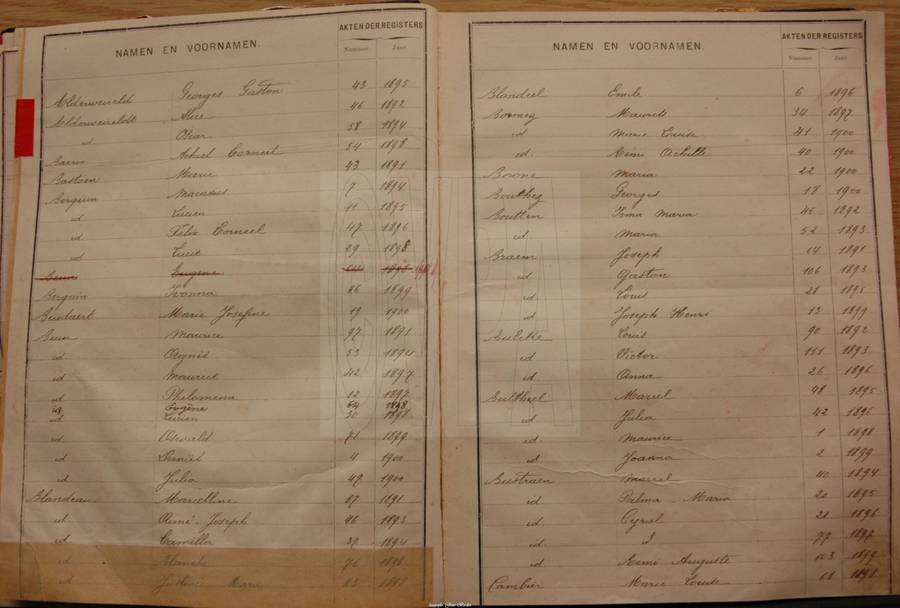 NAMEN EN VOORNAMEN. AKTEN DER REGISTERS
Nummer Jaar
Alderweireld Georges Gaston 43 1895
Alderweireldt Alice 46 1892
id Oscar 58 1894
Achiel Corneil 54 1898
Bastoen Marie 43 1891
Berquin 7 1894
id Lucien 11 1895
id Felix Corneel 47 1896
id Lucie 29 1898
Beun Eugène 64 1898
Berquin Ivonna 86 1899
Marie Josefine 19 1900
Beun Maurice 97 1891
id Agnès 53 1894
id Maurice 42 1897
id Philomena 12 1897
id Eugène 64 1898
id Lucien 30 1898
id 71 1899
id 4 1900
id Julia 47 1900
Blandeau Marcelline 87 1891
id René Joseph 96 1893
id Camilla 29 1894
id Blanche 76 1898
id 93 1898
NAMEN EN VOORNAMEN. AKTEN DER REGISTERS
Nummer Jaar
Emile 6 1896
Maurits 34 1897
id Marie Louise 41 1900
id. Remi Achille 40 1900
Boone Maria 22 1900
Georges 18 1900
Boutten Irma Maria 45 1892
id Maria 52 1893
Braem Joseph 64 1891
id Gaston 106 1893
id Louis 28 1895
id Joseph Henri 13 1899
Louis 90 1892
id Victor 111 1893
id Anna 26 1896
Marcel 48 1895
id Julia 42 1896
id Maurice 1 1898
id Joanna 2 1899
Bustraen Marcel 40 1894
id Palma Maria 20 1895
id. Cyriel 28 1896
id id 77 1897
id Remi Auguste 103 1899
Cambier Marie Louise 68 1898